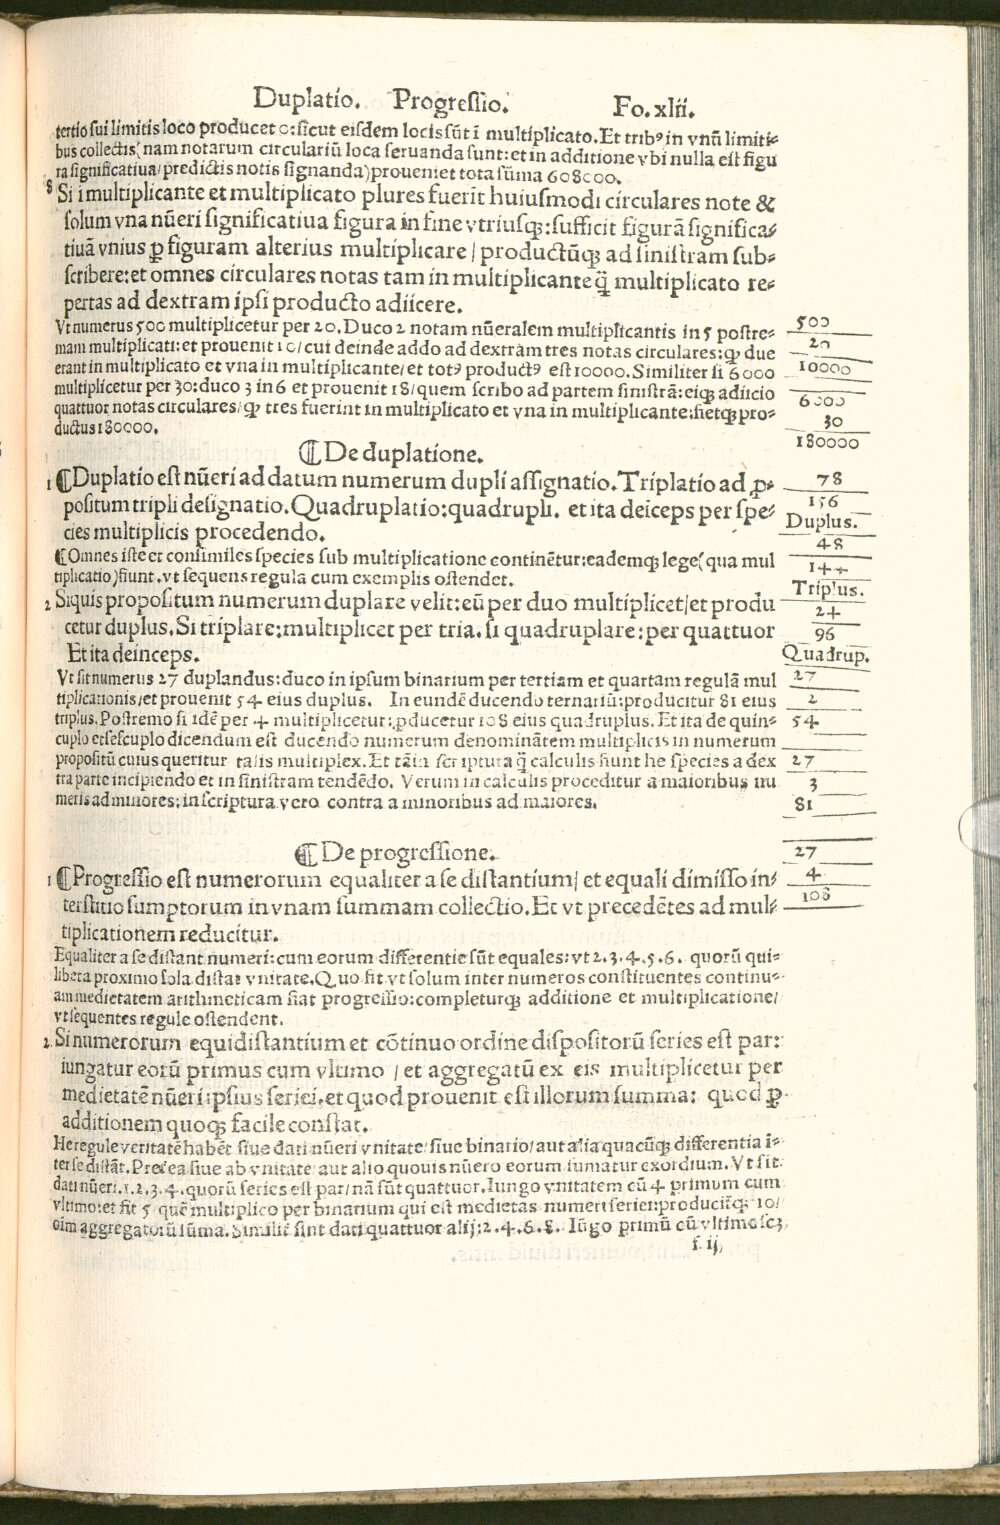 Duplatio. Progressio. Fo.xlii.
tertio sui limitis loco producet 0: sicut eisdem locis sũt ĩ multiplicato. Et tribꝰ in vnũ limiti⸗
bus collectis( nam notarum circulariũ loca seruanda sunt: et in additione vbi nulla est figu
ra significatiua/ predictis notis signanda) proueniet tota sũma 608000.
8 Si ĩ multiplicante et multiplicato plures fuerĩt huiusmodi circulares note &
solum vna nũeri significatiua figura in fine vtriusqꝫ: sufficit figurã significa⸗
tiuã vnius ꝑ figuram alterius multiplicare / productũqꝫ ad sinistram sub⸗
scribere: et omnes circulares notas tam in multiplicante q̃ multiplicato re⸗
pertas ad dextram ipsi producto adiicere.
Vt numerus 500 multiplicetur per 20. Duco 2 notam nũeralem multiplicantis in 5 postre⸗
mam multiplicati: et prouenit 10/ cui deinde addo ad dextram tres notas circulares: qꝫ due
erant in multiplicato et vna in multiplicante/ et totꝰ productꝰ est 10000. Similiter si 6000
multiplicetur per 30: duco 3 in 6 et prouenit 18/ quem scribo ad partem sinistrã: eiqꝫ adiicio
quattuor notas circulares/ qꝫ tres fuerint in multiplicato et vna in multiplicante: fietqꝫ pro⸗
ductus 180000.
500
20
10000
6000
30
180000
¶ De duplatione.
1 ¶Duplatio est nũeri ad datum numerum dupli assignatio. Triplatio ad ꝓ⸗
positum tripli designatio. Quadruplatio: quadrupli. et ita deĩceps per spe⸗
cies multiplicis procedendo.
¶Omnes iste et consimiles species sub multiplicatione continẽtur: eademqꝫ lege( qua mul
tiplicatio) fiunt. vt sequens regula cum exemplis ostendet.
2 Siquis propositum numerum duplare velit: eũ per duo multiplicet/ et produ
cetur duplus. Si triplare: multiplicet per tria. si quadruplare: per quattuor
Et ita deinceps.
78
156
Duplus.
48
144
Triplus.
24
96
Quadrup.
Vt sit numerus 27 duplandus: duco in ipsum binarium per tertiam et quartam regulã mul
tiplicationis/ et prouenit 54 eius duplus. In eundẽ ducendo ternariũ: producitur 81 eius
triplus. Postremo si idẽ per 4 multiplicetur: ꝓducetur 108 eius quadruplus. Et ita de quin⸗
cuplo et sescuplo dicendum est ducendo numerum denominãtem multiplicis in numerum
propositũ cuius queritur talis multiplex. Et tam in scriptura q̃ calculis fiunt he species a dex
tra parte incipiendo et in sinistram tendẽdo. Verum in calculis proceditur a maioribus nu
meris ad minores: in scriptura vero contra a minoribus ad maiores.
27
2
54
27
3
81
27
4
108
¶ De progressione.
1 ¶Progressio est numerorum equaliter a se distantium/ et equali dimisso in⸗
terstitio sumptorum in vnam summam collectio. Et vt precedẽtes ad mul⸗
tiplicationem reducitur.
Equaliter a se distant numeri: cum eorum differentie sũt equales: vt 2.3.4.5.6. quorũ qui⸗
libet a proximo sola distat vnitate. Quo fit vt solum inter numeros constituentes continu⸗
am medietatem arithmeticam fiat progressio: completurqꝫ additione et multiplicatione/
vt sequentes regule ostendent.
2 Si numerorum equidistantium et cõtinuo ordine dispositorũ series est par:
iungatur eorũ primus cum vltimo / et aggregatũ ex eis multiplicetur per
medietatẽ nũeri ipsius seriei. et quod prouenit est illorum summa: quod ꝑ
additionem quoqꝫ facile constat.
He regule veritatẽ habẽt siue dati nũeri vnitate/ siue binario/ aut alia quacũqꝫ differentia ĩ⸗
ter se distãt. Preterea siue ab vnitate aut alio quouis nũero eorum sumatur exordium. Vt sit
dati nũeri .1.2.3.4. quorũ series est par/ nã sũt quattuor. Iungo vnitatem cũ 4 primum cum
vltimo: et fit 5 quẽ multiplico per binarium qui est medietas numeri seriei: producitqꝫ 10/
oim aggregatorũ sũma. Similiẽ sint dati quattuor alij: 2.4.6.8. Iũgo primũ cũ vltimo scꝫ,
f. ij.